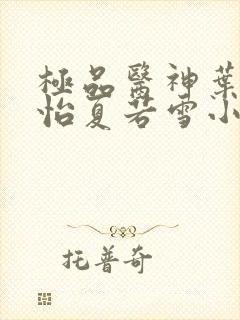 極品醫神葉
怡夏若雪小
托普奇